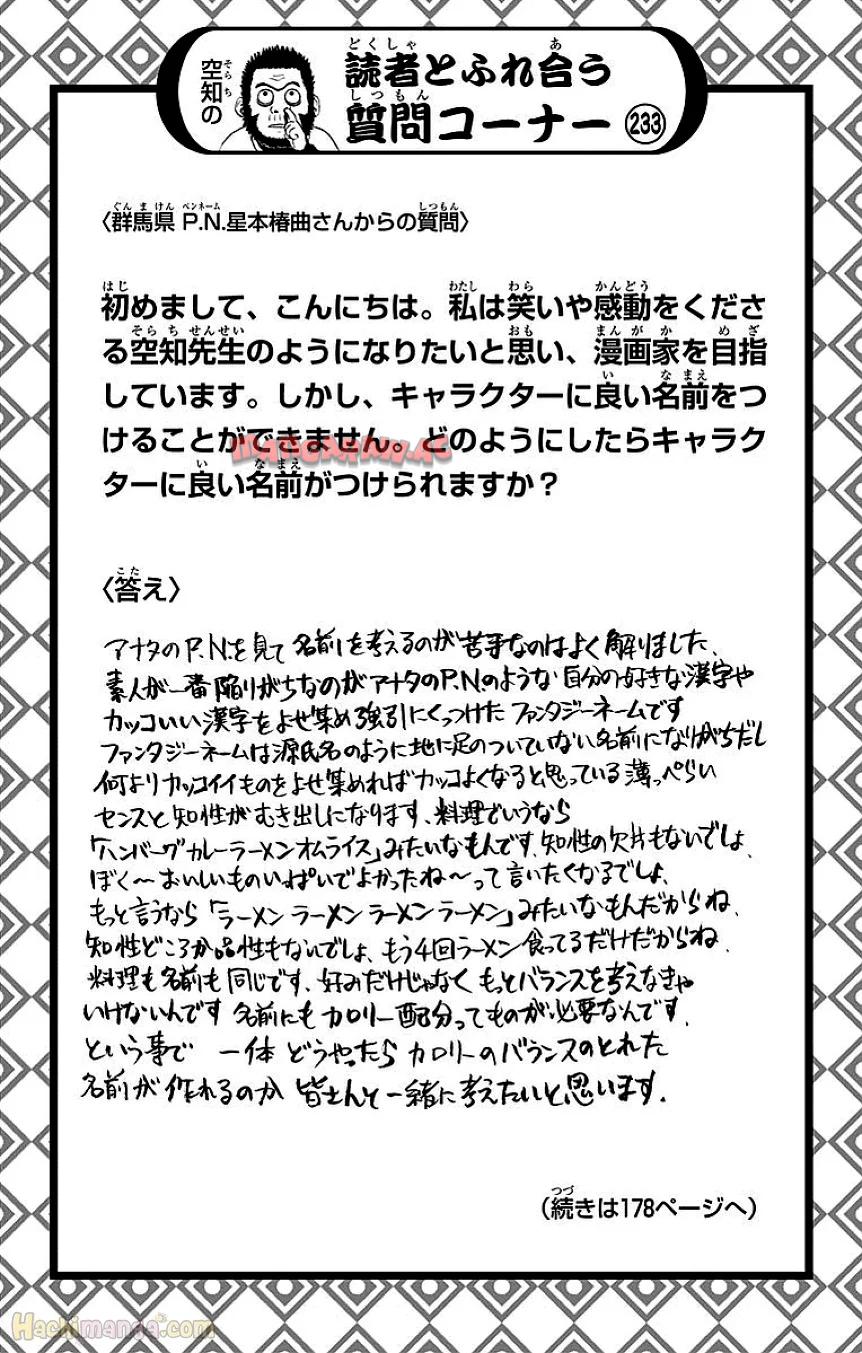 空知の
読者とふれ合う
質問コーナー 233
〈群馬県 P.N.星本椿曲さんからの質問〉
初めまして、こんにちは。私は笑いや感動をくださ
る空知先生のようになりたいと思い、漫画家を目指
しています。しかし、キャラクターに良い名前をつ
けることができません。どのようにしたらキャラク
ターに良い名前がつけられますか？
MANGARAW.AC
〈答え〉
アナタのP.N.を見て 名前を考えるのが苦手なのはよく解りました、
素人が一番陥りがちなのがアナタのP.N.のような 自分の好きな漢字や
カッコいい漢字をよせ集め強引にくっつけた ファンタジーネームです
ファンタジーネームは源氏名のように地に足のついていない名前になりがちだし
何よりカッコイイものをよせ集めればカッコよくなると思っている薄っぺらい
センスと知性がむき出しになります、料理でいうなら
「ハンバーグカレーラーメンオムライス」みたいなもんです、知性の欠片もないでしょ、
ぼく〜おいしいものいっぱいでよかったね〜って言いたくなるでしょ、
もっと言うなら「ラーメン ラーメン ラーメン ラーメン」みたいなもんだからね、
知性どころか品性もないでしょ、もう4回ラーメン食ってるだけだからね、
料理も名前も同じです、好みだけじゃなく もっとバランスを考えなきゃ
いけないんです 名前にもカロリー配分ってものが必要なんです、
という事で 一体どうやったらカロリーのバランスのとれた
名前が作れるのか 皆さんと一緒に考えたいと思います．
（続きは178ページへ）
Hachimanga.com